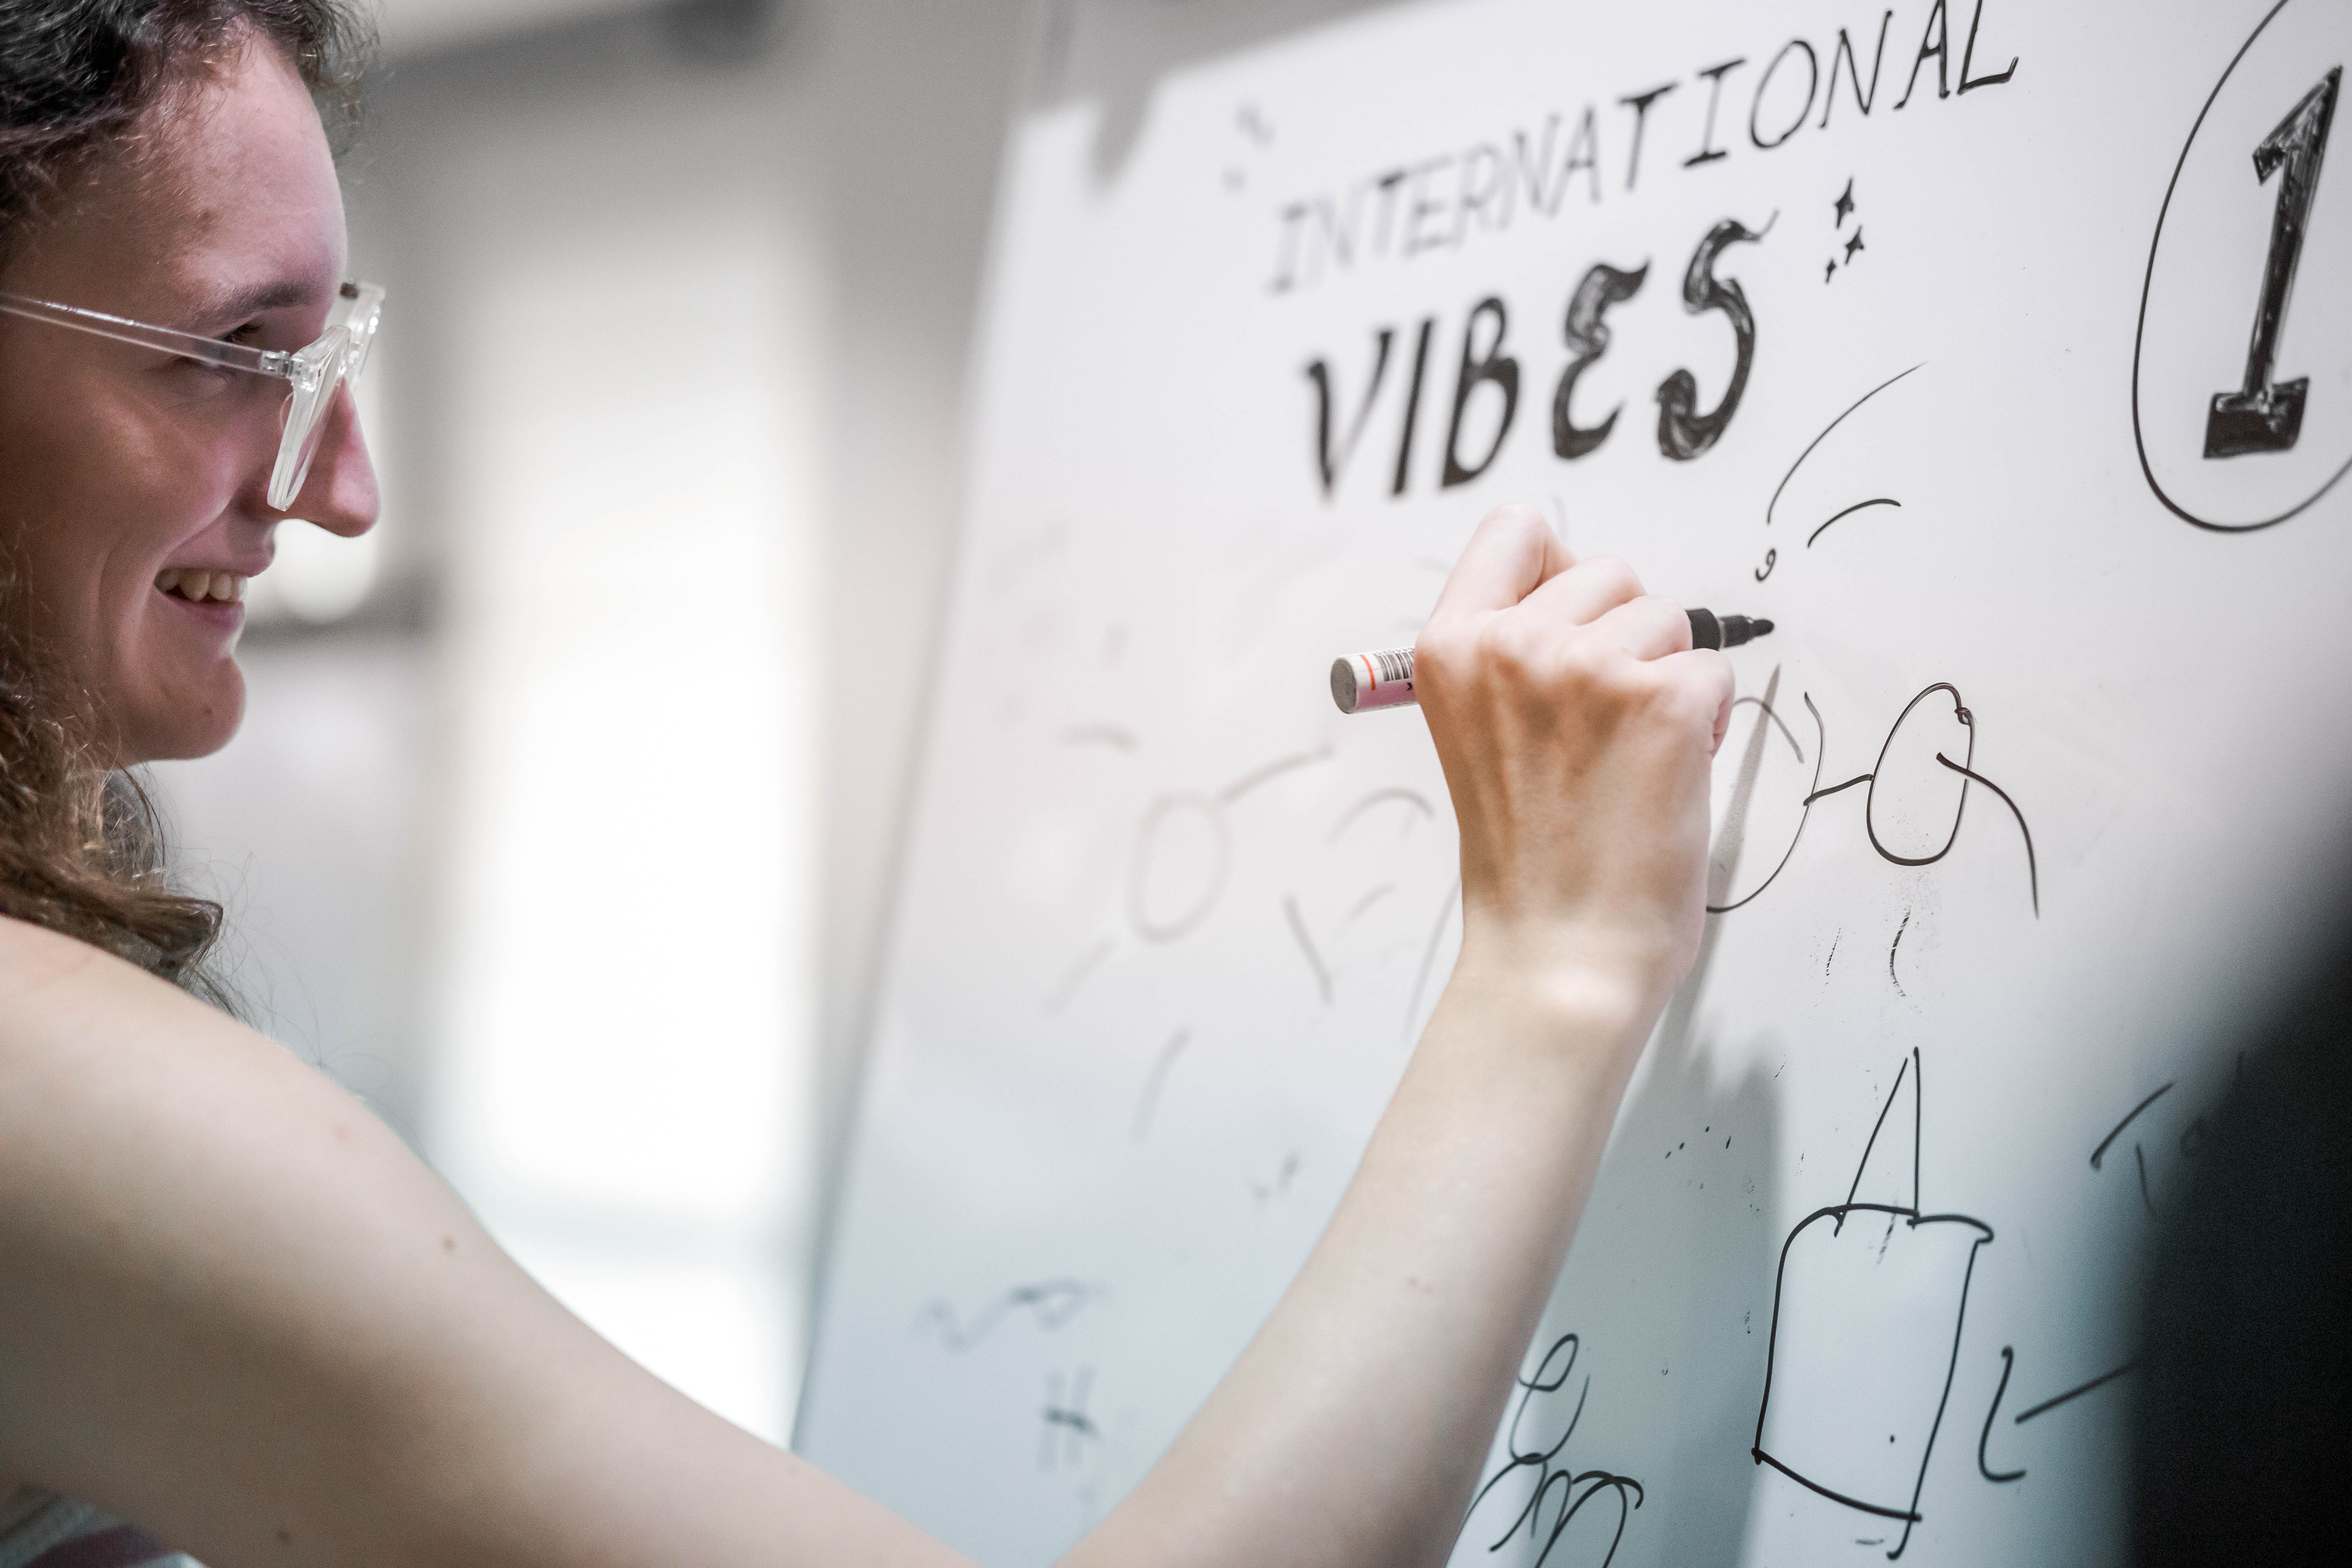 INTERNATIONAL
VIBES
1